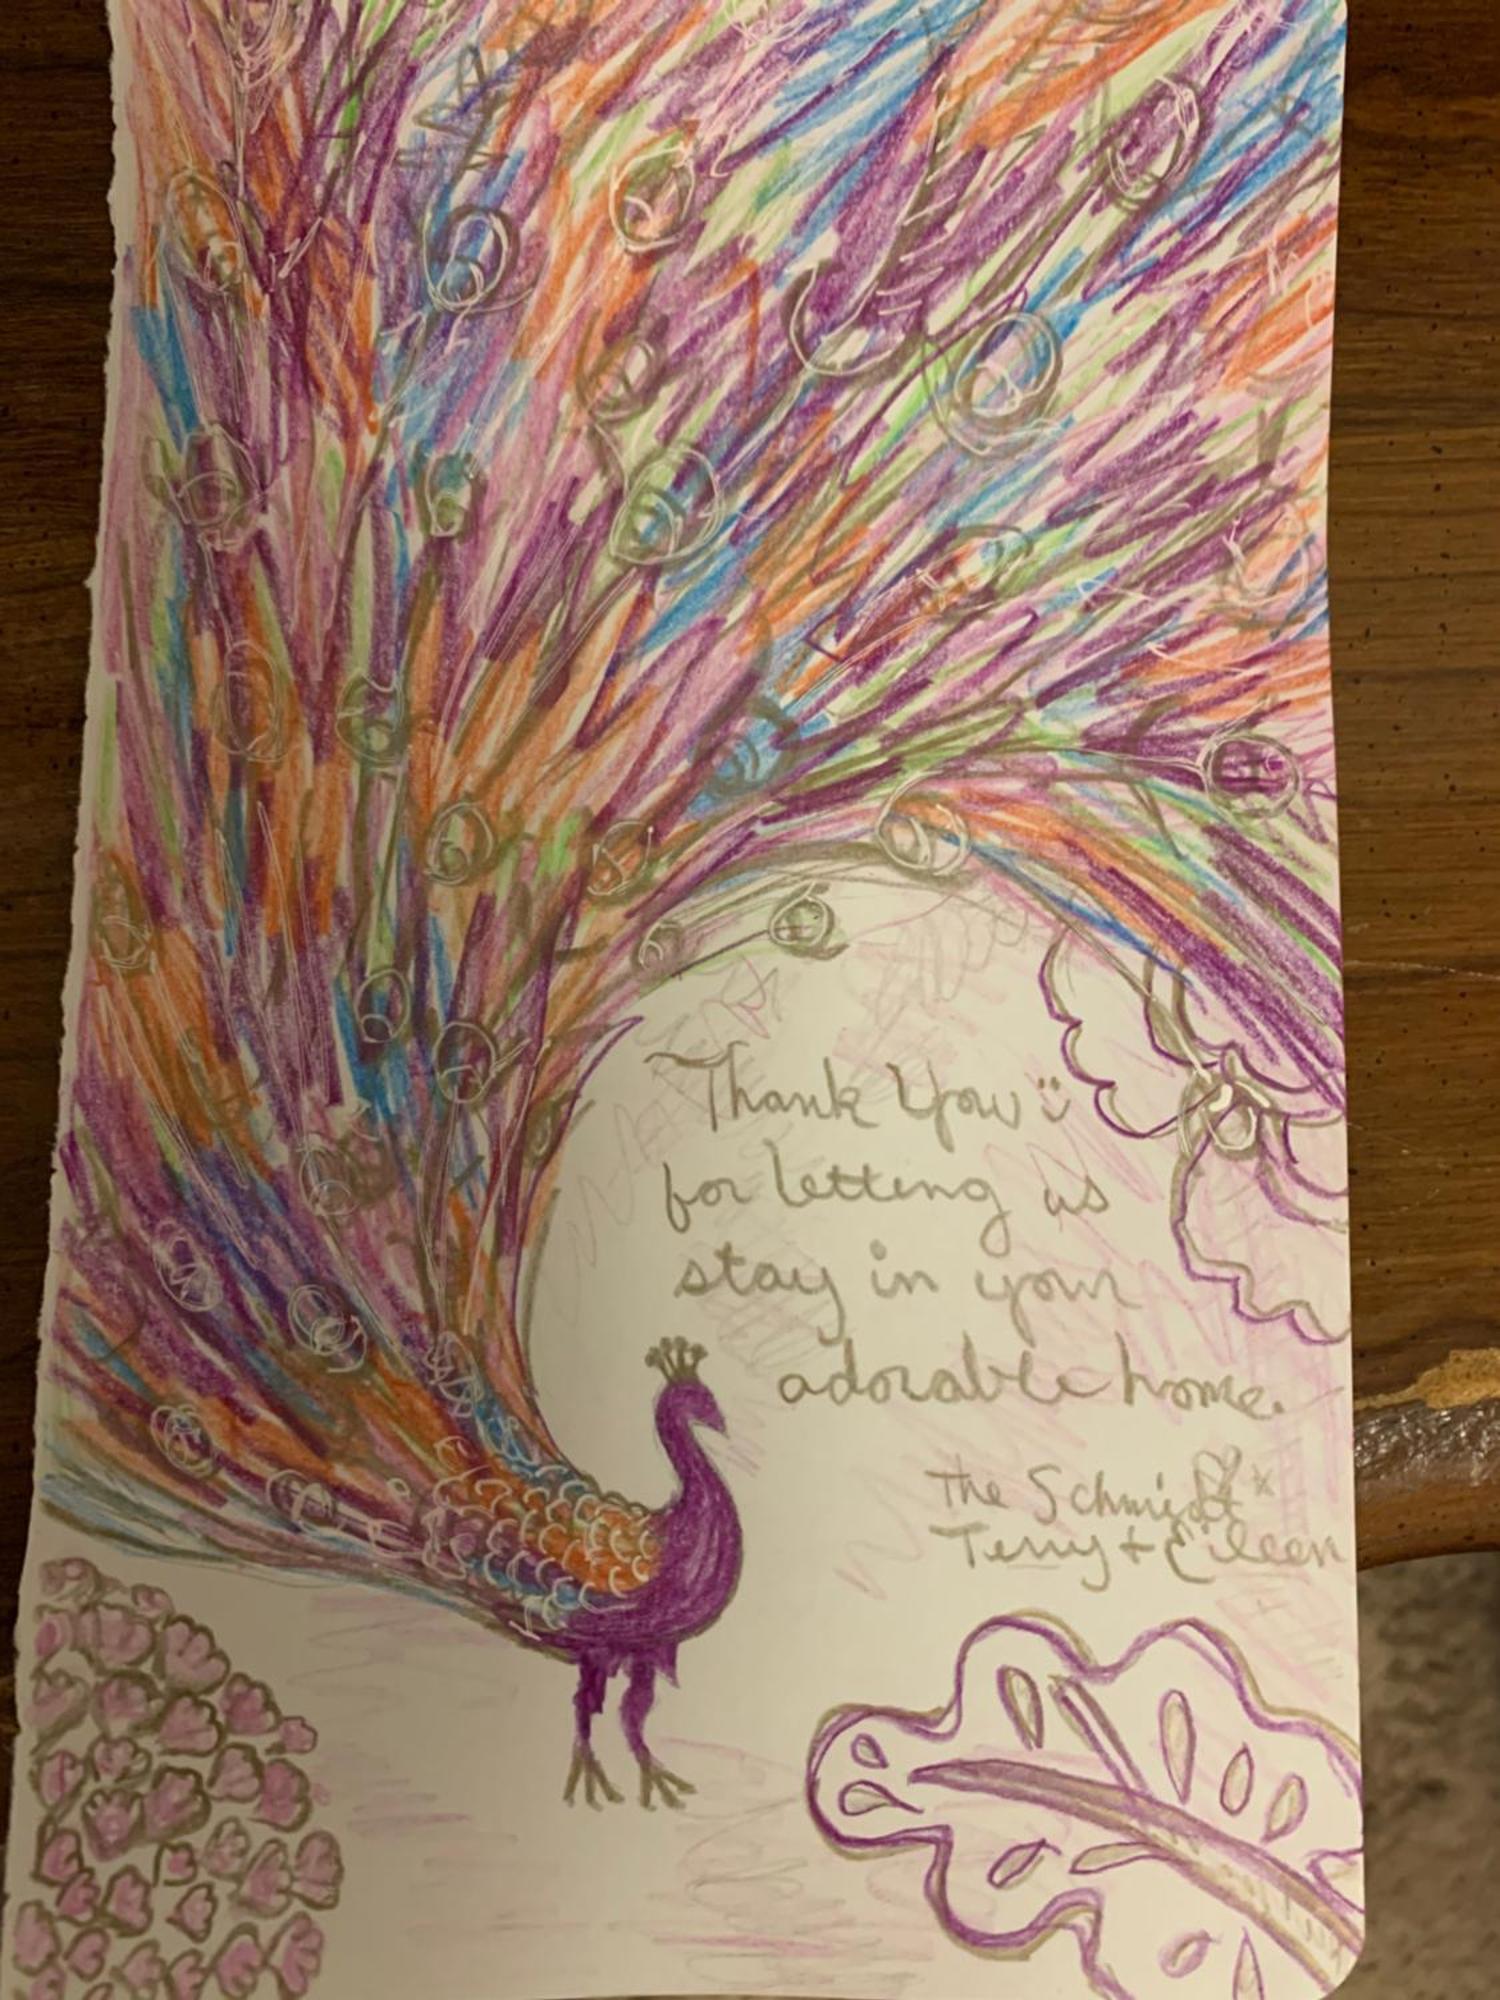 Thank You
for letting us
stay in your
adorable home.
The Schmidt
Terry + Eileen